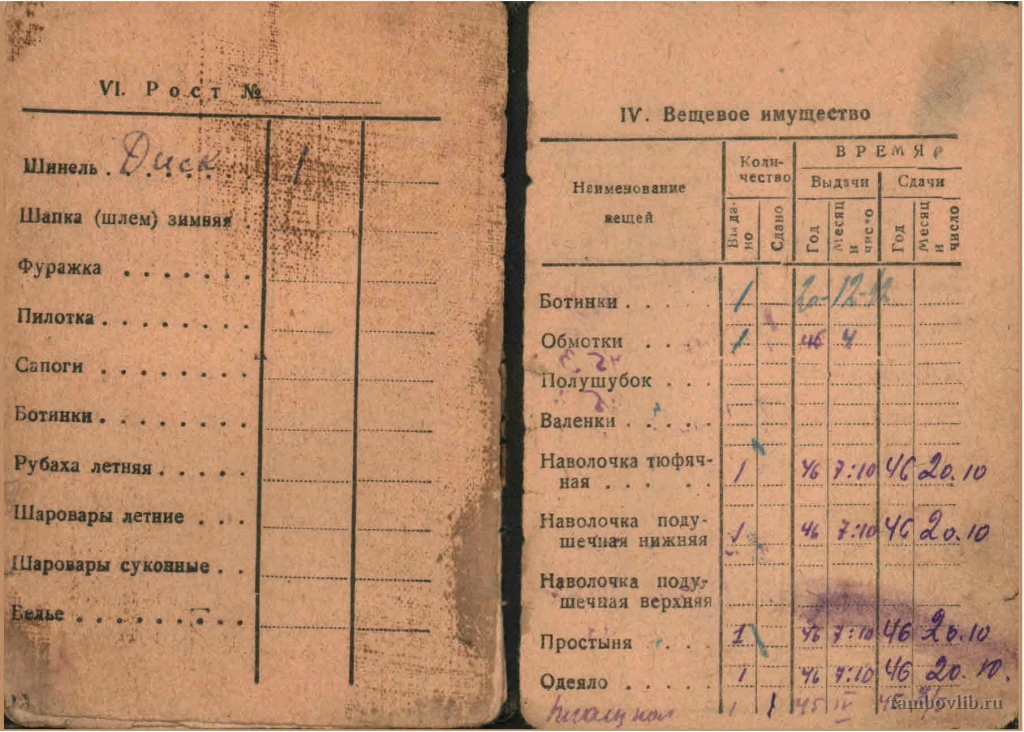 VI. Рост №
Шинель Диск 1
Шапка (шлем) зимняя
Фуражка
Пилотка
Сапоги
Ботинки
Рубаха летняя
Шаровары летние
Шаровары суконные
Белье
IV. Вещевое имущество
Наименование вещей
Количество
ВРЕМЯ
Выдачи
Сдачи
Выдано
Сдано
Год
Месяц и число
Год
Месяц и число
Ботинки 1 20-12-
Обмотки 1 46 4
Полушубок
Валенки
Наволочка тюфяч-
ная 1 46 7:10 46 20.10
Наволочка поду-
шечная нижняя 1 46 7:10 46 20.10
Наволочка поду-
шечная верхняя
Простыня 1 46 7:10 46 20.10
Одеяло 1 46 7:10 46 20.10.
1 1 45 IV 45
tambovlib.ru